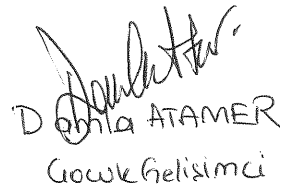 Damla ATAMER
Çocuk Gelişimci